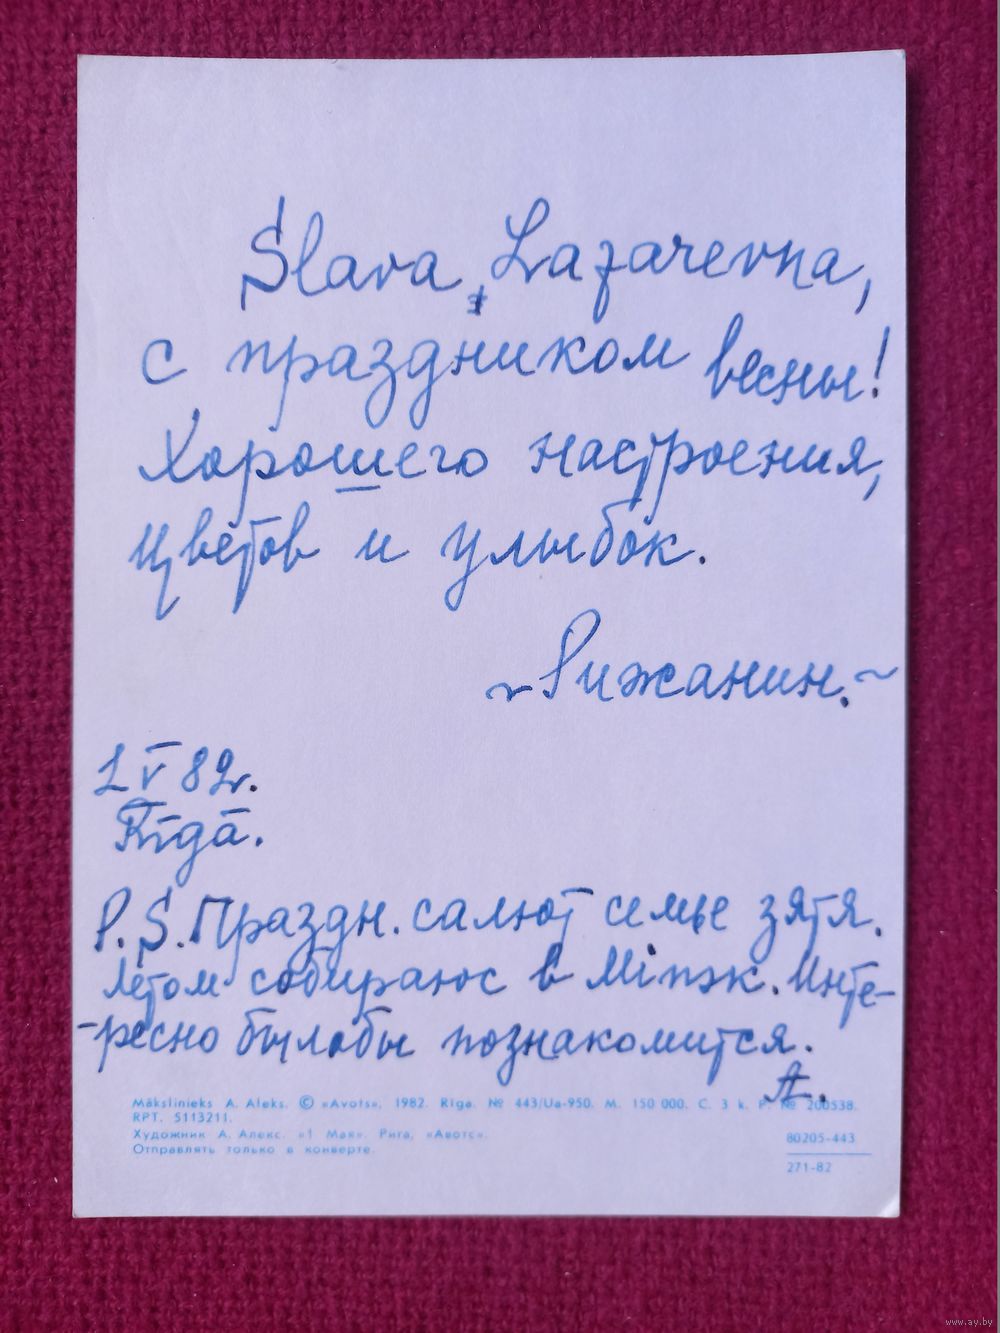 Slava Lazarevna,
с праздником весны!
Хорошего настроения,
цветов и улыбок.
~Рижанин.~
1 V 82г.
Rīgā.
P.S. Праздн. салют семье зятя.
Летом собираюс в Minэк. Инте-
-ресно былобы познакомится.
A.
Mākslinieks A. Aleks. © «Avots», 1982. Rīga. № 443/Ua-950. M. 150 000. C. 3 k. P. № 200538.
RPT. 5113211.
Художник А. Алекс. «1 Мая». Рига, «Авотс».
Отправлять только в конверте.
80205-443
271-82
www.ay.by